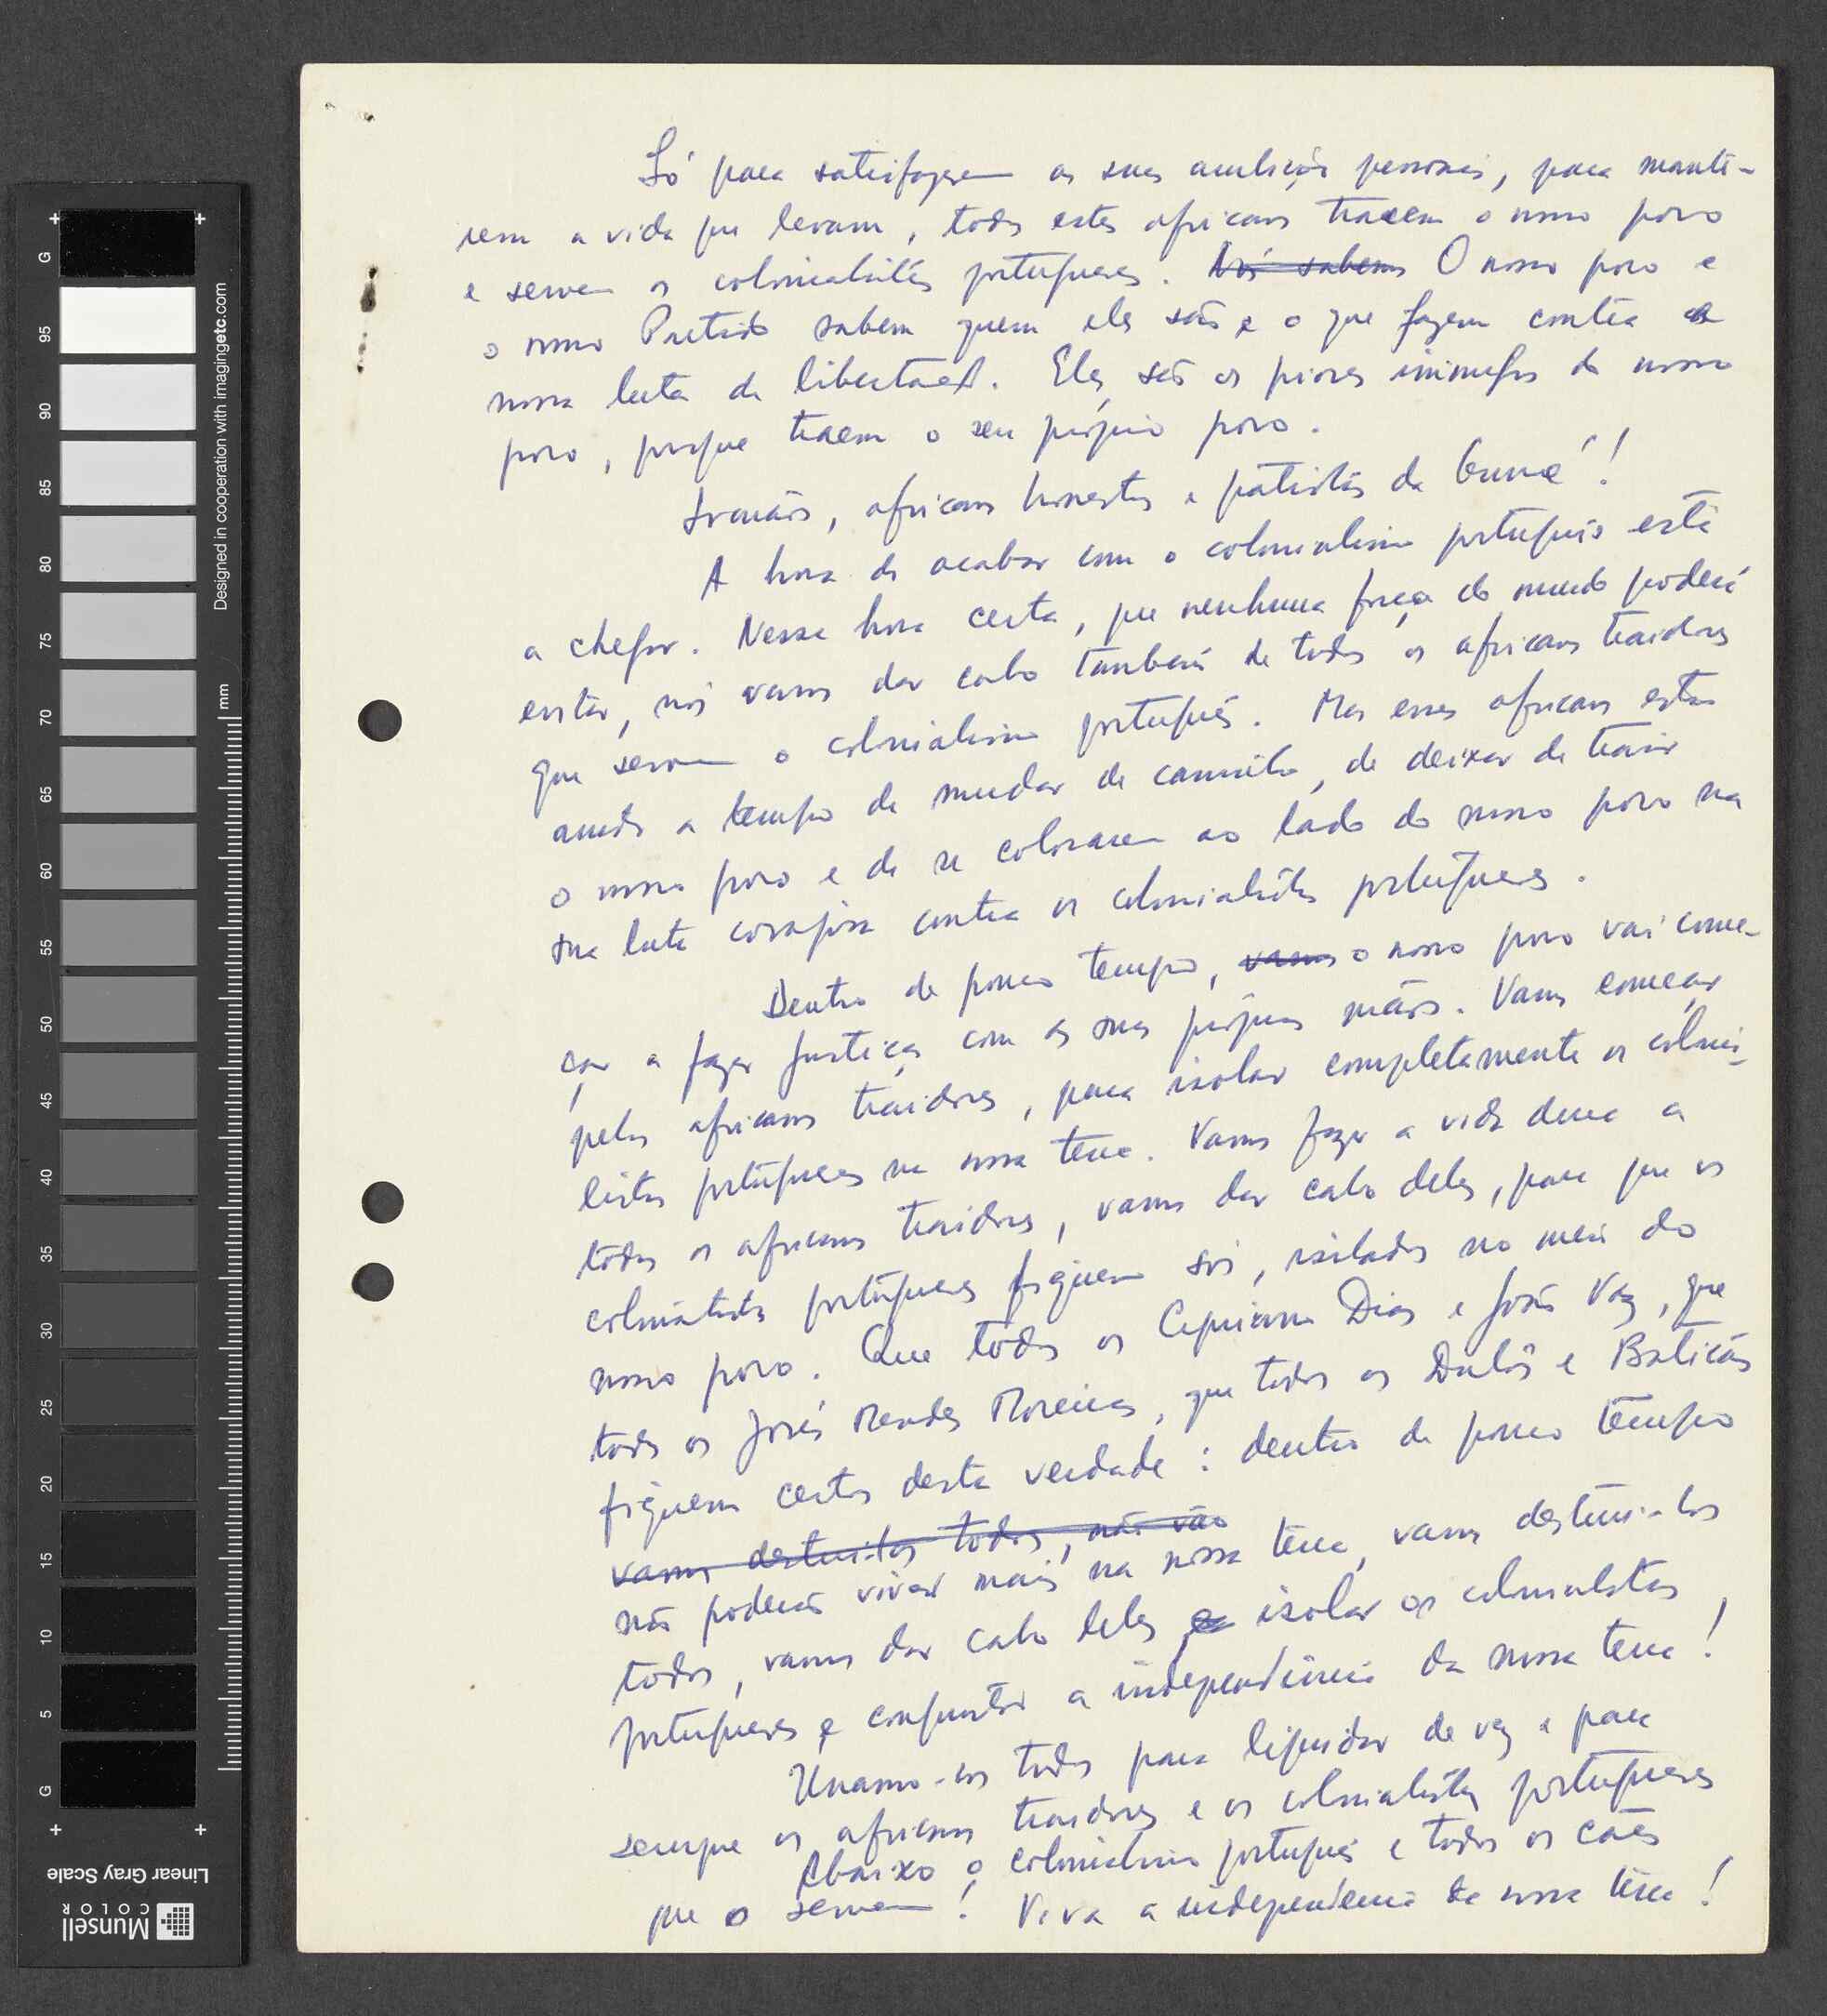 Só para satisfazerem as suas ambições pessoais, para mante-
rem a vida que levam, todos estes africanos traem o nosso povo
e servem os colonialistas portugueses. Nós sabemos O nosso povo e
o nosso Partido sabem quem eles são e o que fazem contra a
nossa luta de libertação. Eles são os piores inimigos do nosso
povo, porque traem o seu próprio povo.
Irmãos, africanos honestos e patriotas da Guiné!
A hora de acabar com o colonialismo português está
a chegar. Nessa hora certa, que nenhuma força do mundo poderá
evitar, nós vamos dar cabo também de todos os africanos traidores
que servem o colonialismo português. Mas esses africanos estão
ainda a tempo de mudar de caminho, de deixar de trair
o nosso povo e de se colocarem ao lado do nosso povo na
sua luta corajosa contra os colonialistas portugueses.
Dentro de pouco tempo, vamos o nosso povo vai come-
çar a fazer justiça com as suas próprias mãos. Vamos começar
pelos africanos traidores, para isolar completamente os colonia-
listas portugueses na nossa terra. Vamos fazer a vida dura a
todos os africanos traidores, vamos dar cabo deles, para que os
colonialistas portugueses fiquem sós, isolados no meio do
nosso povo. Que todos os Cipriano Dias e João Vaz, que
todos os José Mendes Moreiras, que todos os Dulós e Baticãs
fiquem certos desta verdade: dentro de pouco tempo
vamos destruí-los todos, não vão
não poderão viver mais na nossa terra, vamos destruí-los
todos, vamos dar cabo deles isolar os colonialistas
portugueses e conquistar a independência da nossa terra!
Unamo-nos todos para liquidar de vez e para
sempre os africanos traidores e os colonialistas portugueses
Abaixo o colonialismo português e todos os cães
que o servem! Viva a independência da nossa terra!
Designed in cooperation with imagingetc.com
mm
G
95
90
85
80
75
70
65
60
55
50
45
40
35
30
25
20
15
10
5
G
Linear Gray Scale
Munsell
COLOR